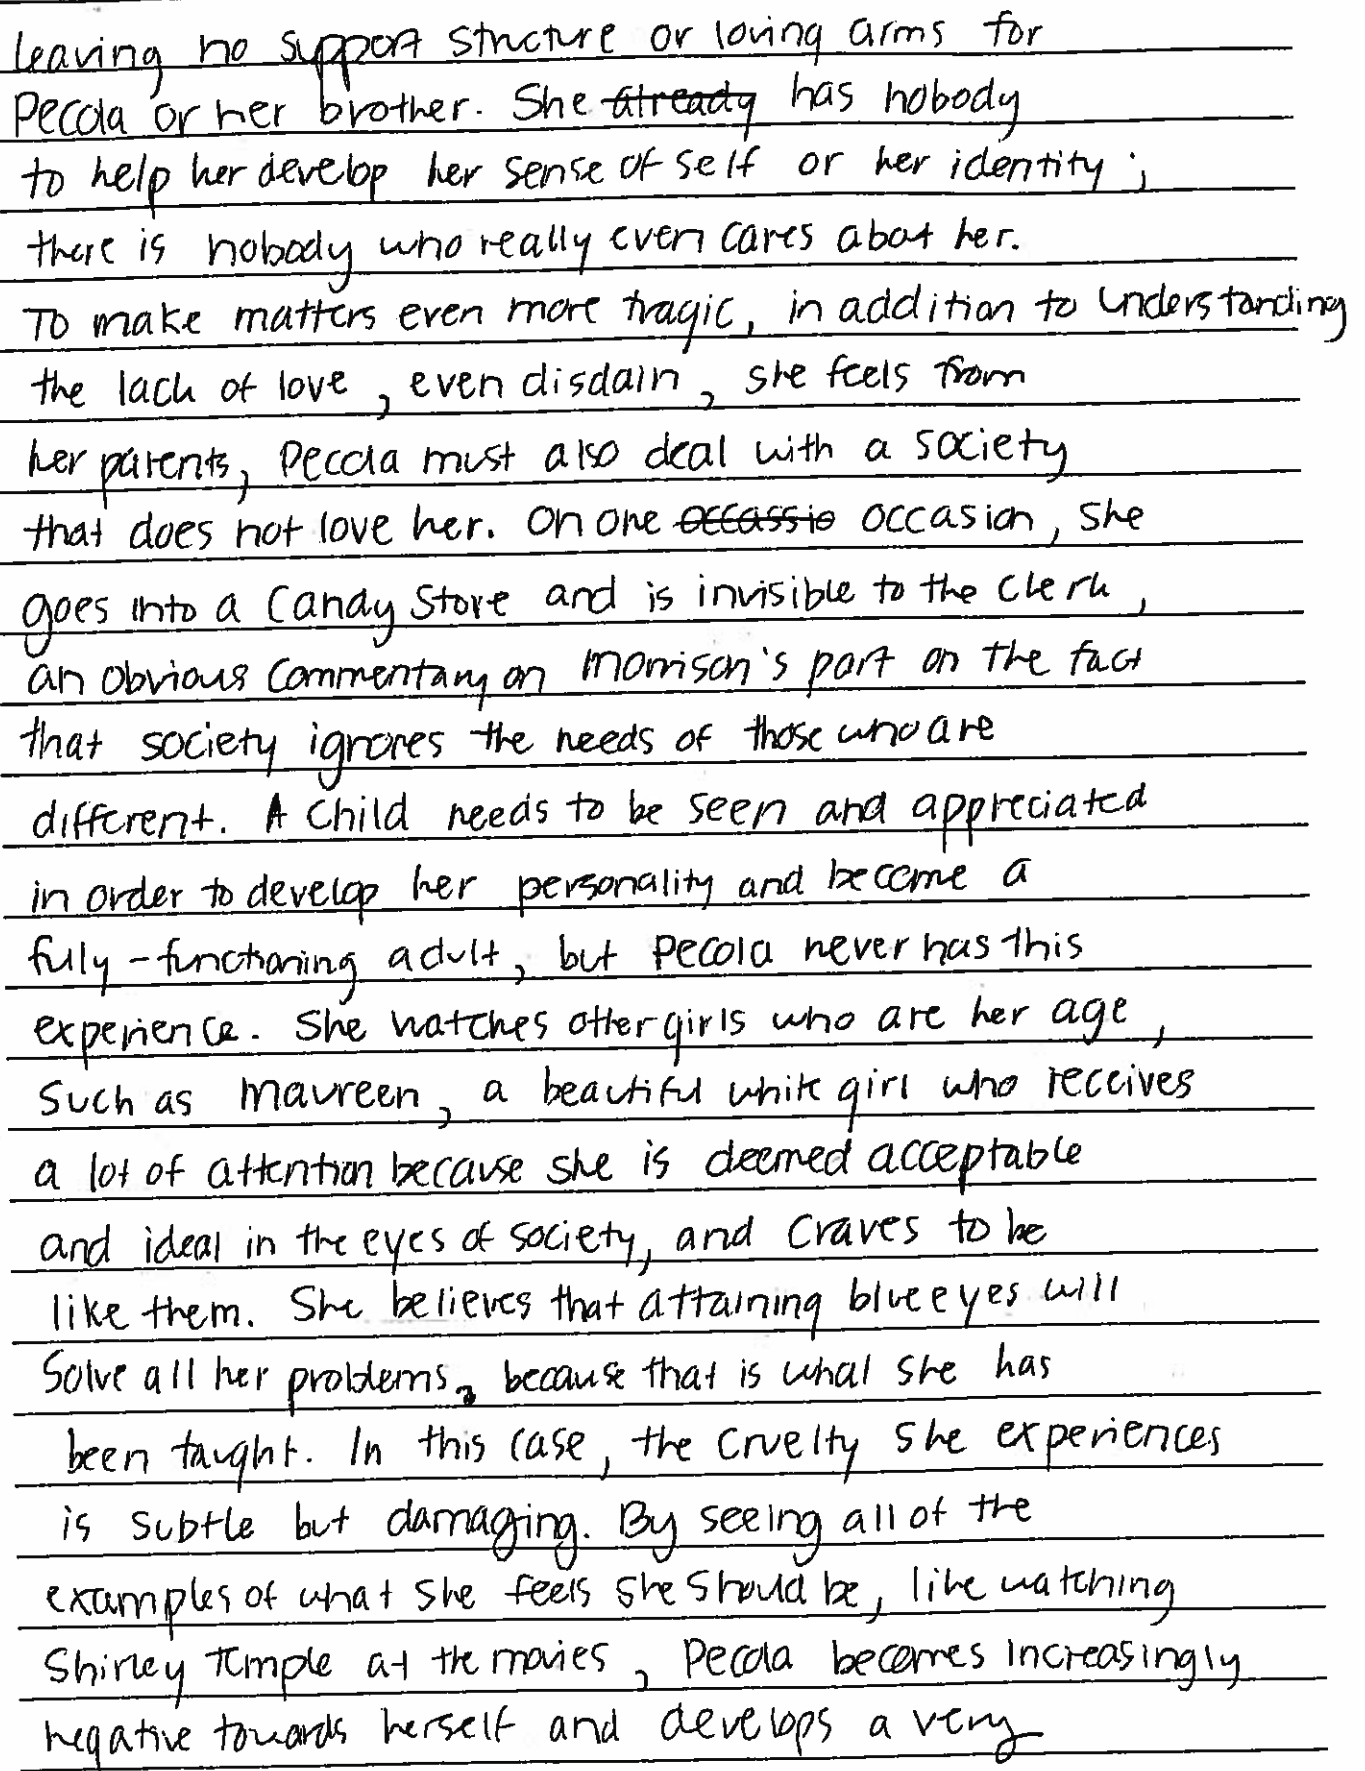 leaving no support structure or loving arms for
Pecola or her brother. She already has nobody
to help her develop her sense of self or her identity;
there is nobody who really even cares about her.
To make matters even more tragic, in addition to understanding
the lack of love, even disdain, she feels from
her parents, Pecola must also deal with a society
that does not love her. On one occassio occasion, she
goes into a candy store and is invisible to the clerk,
an obvious commentary on Morrison's part on the fact
that society ignores the needs of those who are
different. A child needs to be seen and appreciated
in order to develop her personality and become a
fully-functioning adult, but Pecola never has this
experience. She watches other girls who are her age,
such as Maureen, a beautiful white girl who receives
a lot of attention because she is deemed acceptable
and ideal in the eyes of society, and craves to be
like them. She believes that attaining blue eyes will
solve all her problems, because that is what she has
been taught. In this case, the cruelty she experiences
is subtle but damaging. By seeing all of the
examples of what she feels she should be, like watching
Shirley Temple at the movies, Pecola becomes increasingly
negative towards herself and develops a very